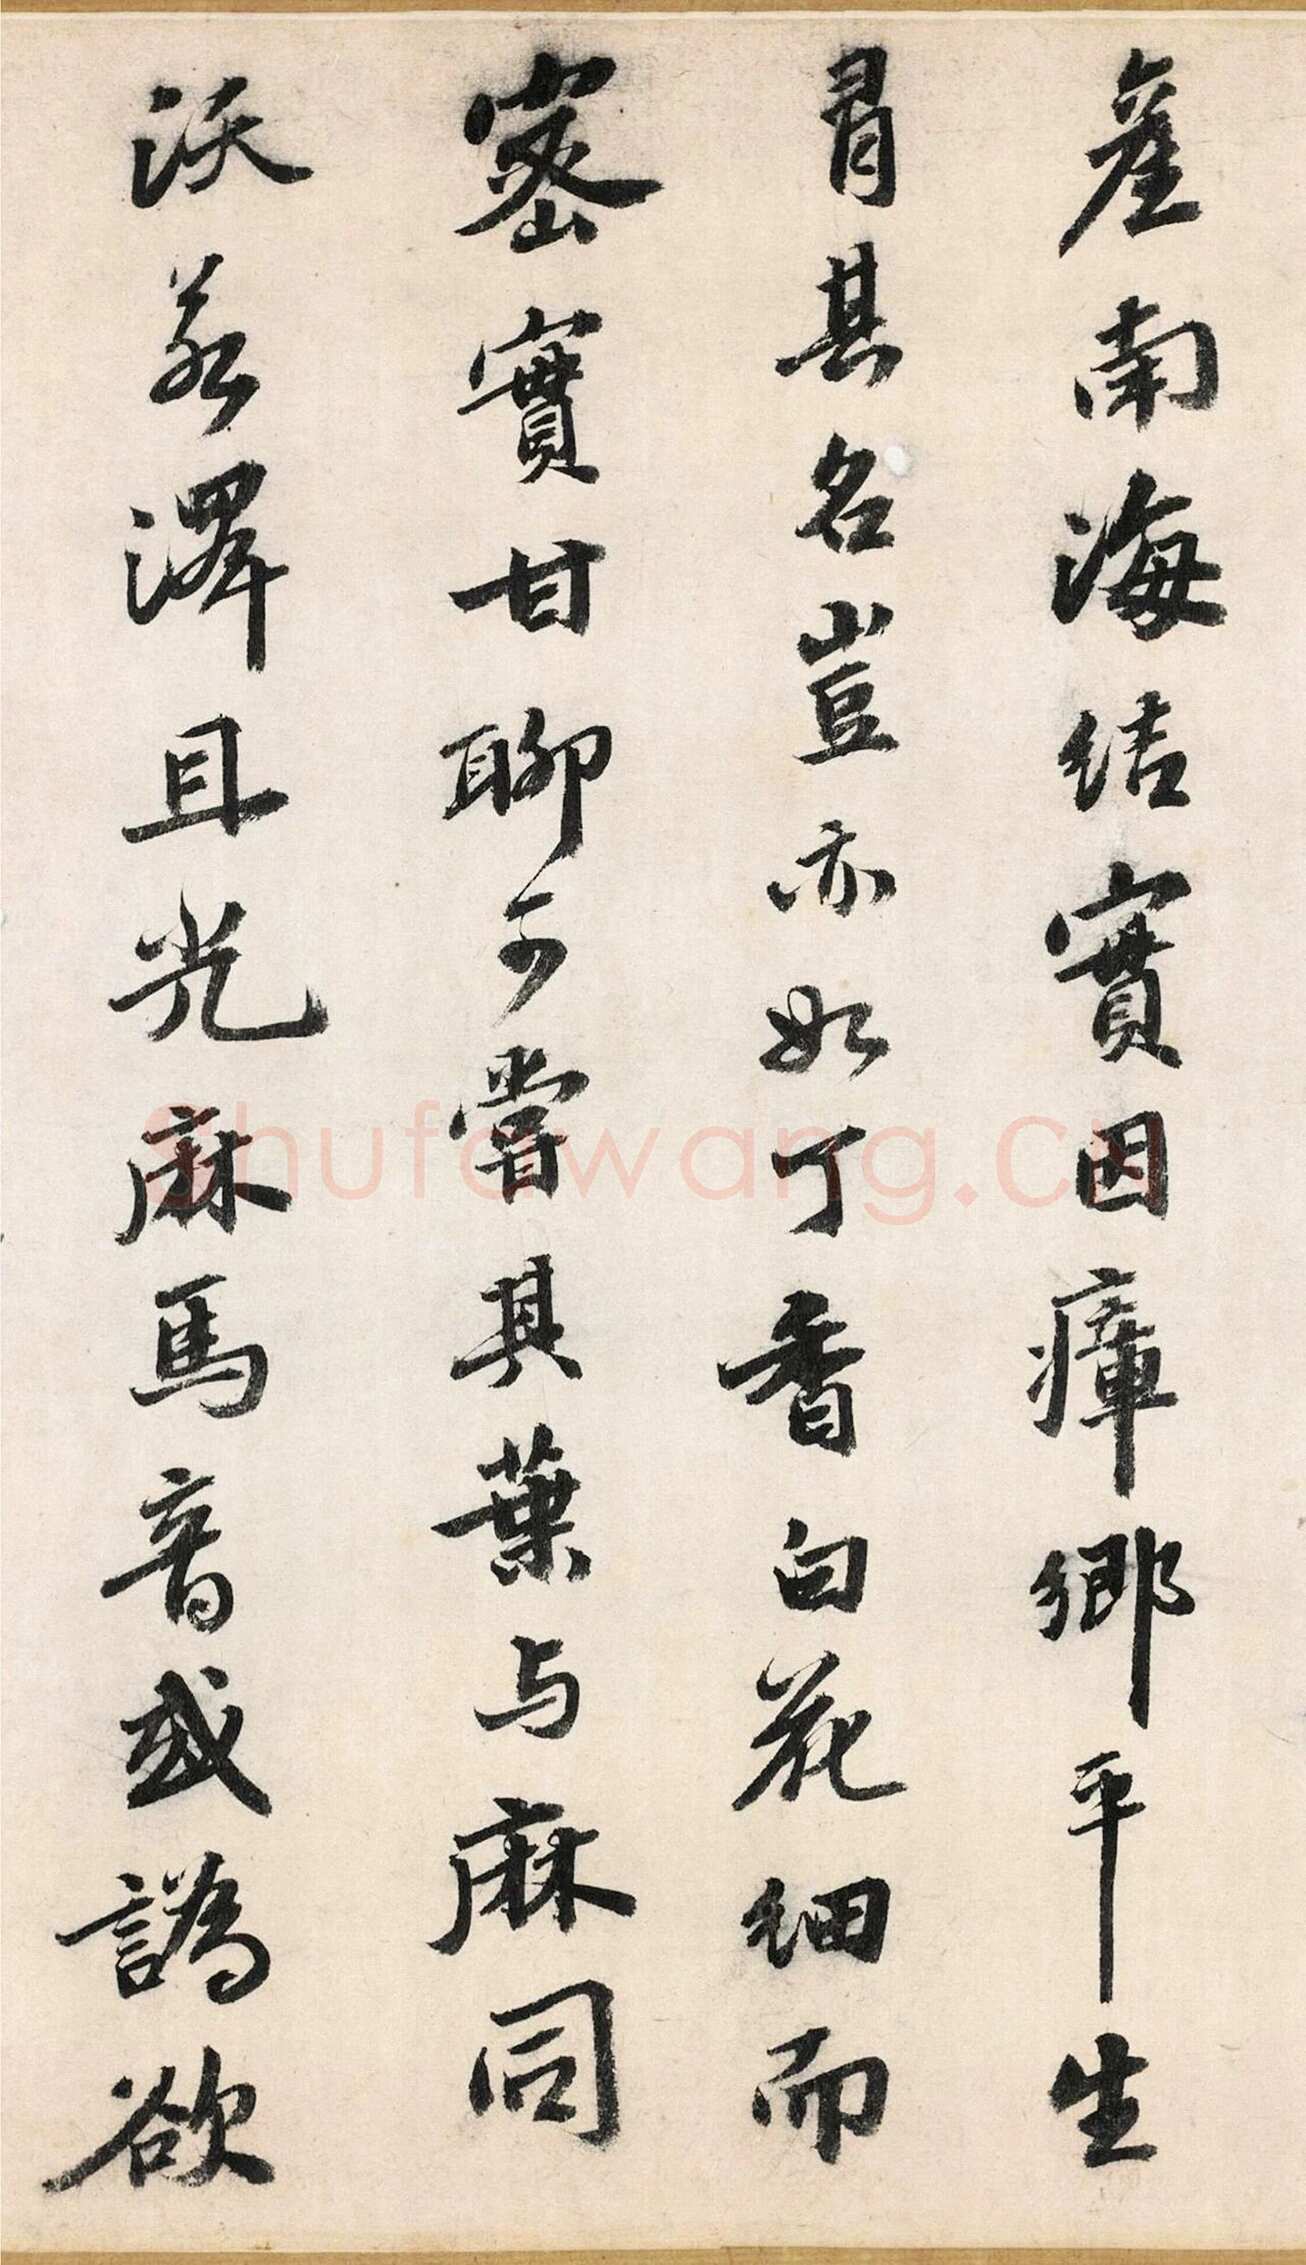 產南海結實因瘴鄉平生
冐其名豈亦如丁香白花細而
密實甘聊可嘗其葉与麻同
沃若澤且光麻馬音或譌欲
Shufawang.cn